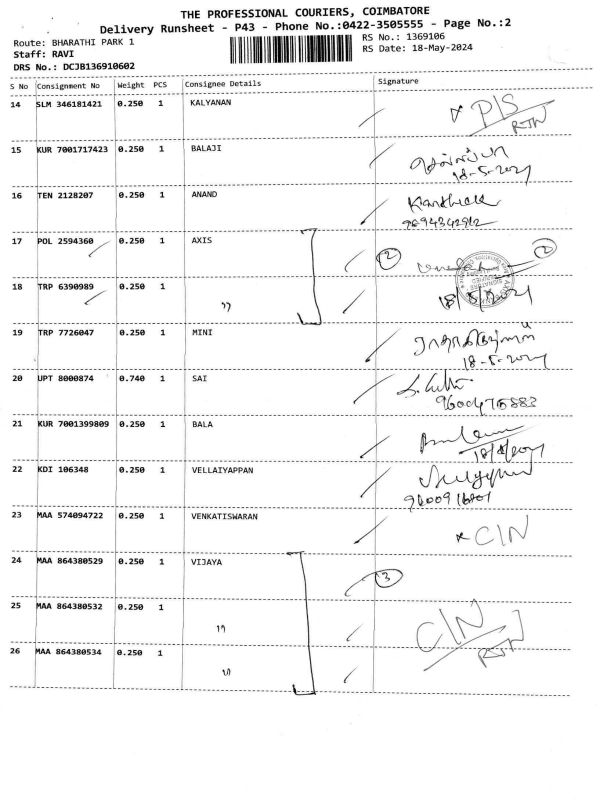 THE PROFESSIONAL COURIERS, COIMBATORE
Delivery Runsheet - P43 - Phone No.:0422-3505555 - Page No.:2
Route: BHARATHI PARK 1
RS No.: 1369106
Staff: RAVI
RS Date: 18-May-2024
DRS No.: DCJB136910602
S No Consignment No Weight PCS Consignee Details Signature
14 SLM 346181421 0.250 1 KALYANAN P/S
RTN
15 KUR 7001717423 0.250 1 BALAJI
18-5-2024
16 TEN 2128207 0.250 1 ANAND Karthick
9894342912
17 POL 2594360 0.250 1 AXIS 2 2
18 TRP 6390989 0.250 1 " 18/5/2024
19 TRP 7726047 0.250 1 MINI
18-5-2024
20 UPT 8000874 0.740 1 SAI
21 KUR 7001399809 0.250 1 BALA
18/5/2024
22 KDI 106348 0.250 1 VELLAIYAPPAN
23 MAA 574094722 0.250 1 VENKATISWARAN C/N
24 MAA 864380529 0.250 1 VIJAYA 3
25 MAA 864380532 0.250 1 " C/N
26 MAA 864380534 0.250 1 " RTN